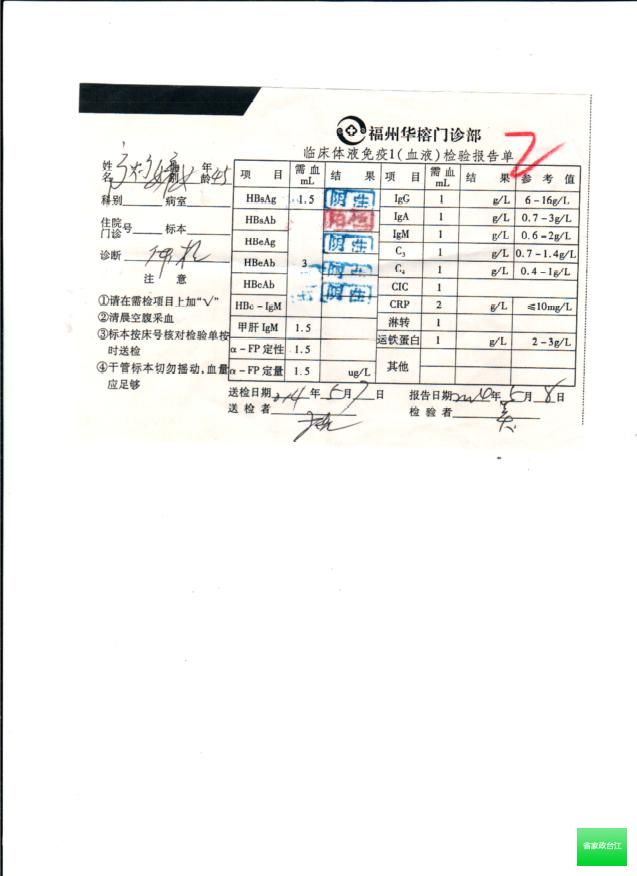 福州华榕门诊部
临床体液免疫1(血液)检验报告单
2
姓名 性别 女 年龄 45
科别 病室
住院门诊号 标本
诊断
注 意
①请在需检项目上加“√”
②清晨空腹采血
③标本按床号核对检验单按时送检
④干管标本切勿摇动,血量应足够
项 目 需血mL 结 果 项 目 需血mL 结 果 参考值
HBsAg 1.5 阴性 IgG 1 g/L 6-16g/L
HBsAb 阳性 IgA 1 g/L 0.7-3g/L
HBeAg 阴性 IgM 1 g/L 0.6-2g/L
HBeAb 3 阴性 C3 1 g/L 0.7-1.4g/L
HBcAb 阴性 C4 1 g/L 0.4-1g/L
CIC 1
HBc-IgM CRP 2 g/L ≤10mg/L
甲肝IgM 1.5 淋转 1
α-FP定性 1.5 运铁蛋白 1 g/L 2-3g/L
α-FP定量 1.5 ug/L 其他
送检日期 年 5月 7日 报告日期 年 5月 8日
送检者 检验者
省家政台江